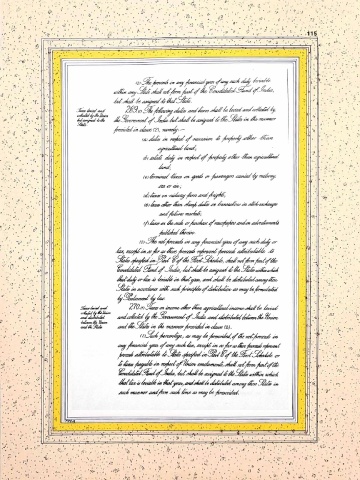 115
(2) The proceeds in any financial year of any such duty leviable
within any State shall not form part of the Consolidated Fund of India,
but shall be assigned to that State.
Taxes levied and
collected by the Union
but assigned to the
States.
269. (1) The following duties and taxes shall be levied and collected by
the Government of India but shall be assigned to the States in the manner
provided in clause (2), namely:—
(a) duties in respect of succession to property other than
agricultural land;
(b) estate duty in respect of property other than agricultural
land;
(c) terminal taxes on goods or passengers carried by railway,
sea or air;
(d) taxes on railway fares and freights;
(e) taxes other than stamp duties on transactions in stock-exchanges
and futures markets;
(f) taxes on the sale or purchase of newspapers and on advertisements
published therein.
(2) The net proceeds in any financial year of any such duty or
tax, except in so far as those proceeds represent proceeds attributable to
States specified in Part C of the First Schedule, shall not form part of the
Consolidated Fund of India, but shall be assigned to the States within which
that duty or tax is leviable in that year, and shall be distributed among those
States in accordance with such principles of distribution as may be formulated
by Parliament by law.
Taxes levied and
collected by the Union
and distributed
between the Union
and the States.
270. (1) Taxes on income other than agricultural income shall be levied
and collected by the Government of India and distributed between the Union
and the States in the manner provided in clause (2).
(2) Such percentage, as may be prescribed, of the net proceeds in
any financial year of any such tax, except in so far as those proceeds represent
proceeds attributable to States specified in Part C of the First Schedule or
to taxes payable in respect of Union emoluments, shall not form part of the
Consolidated Fund of India, but shall be assigned to the States within which
that tax is leviable in that year, and shall be distributed among those States in
such manner and from such time as may be prescribed.